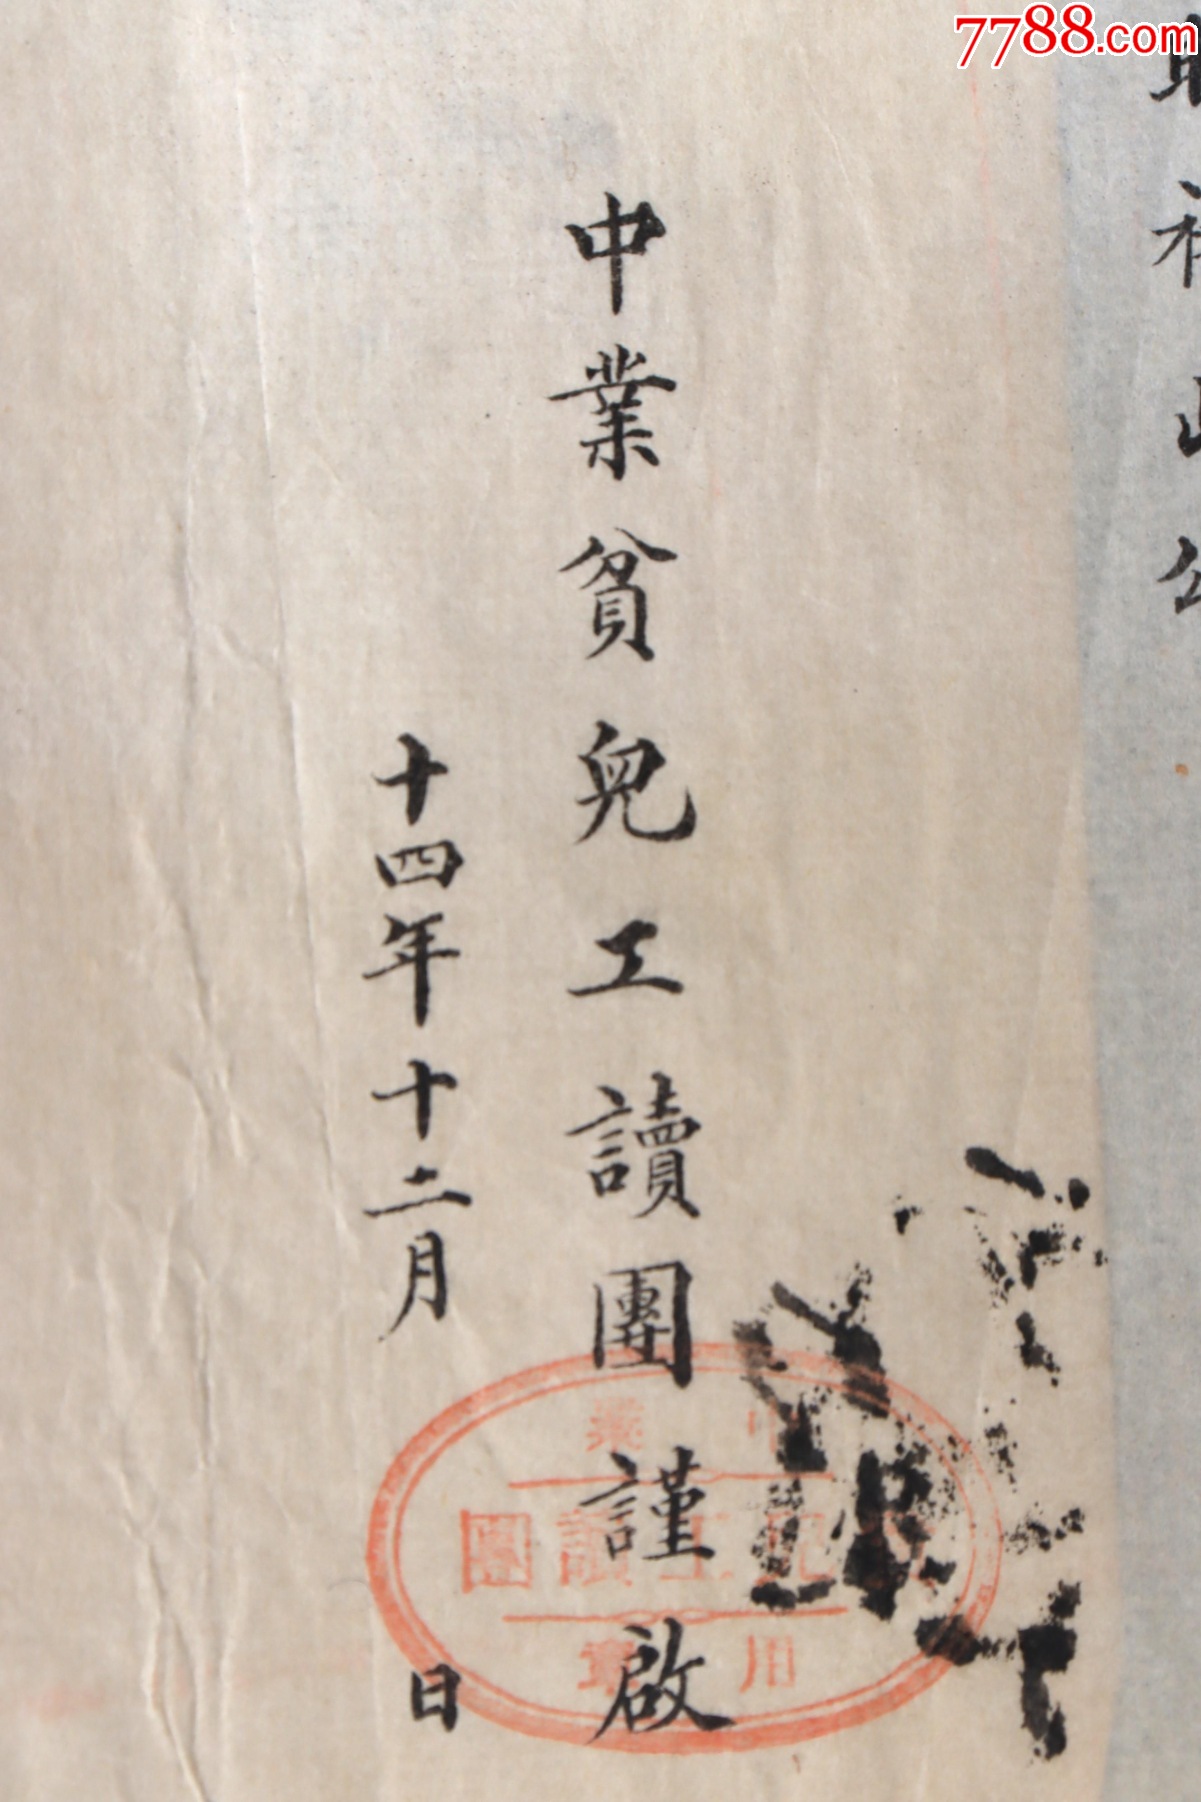 7788.com
中業貧兒工讀團謹啟
十四年十二月 日
中業
貧兒工讀團
用章